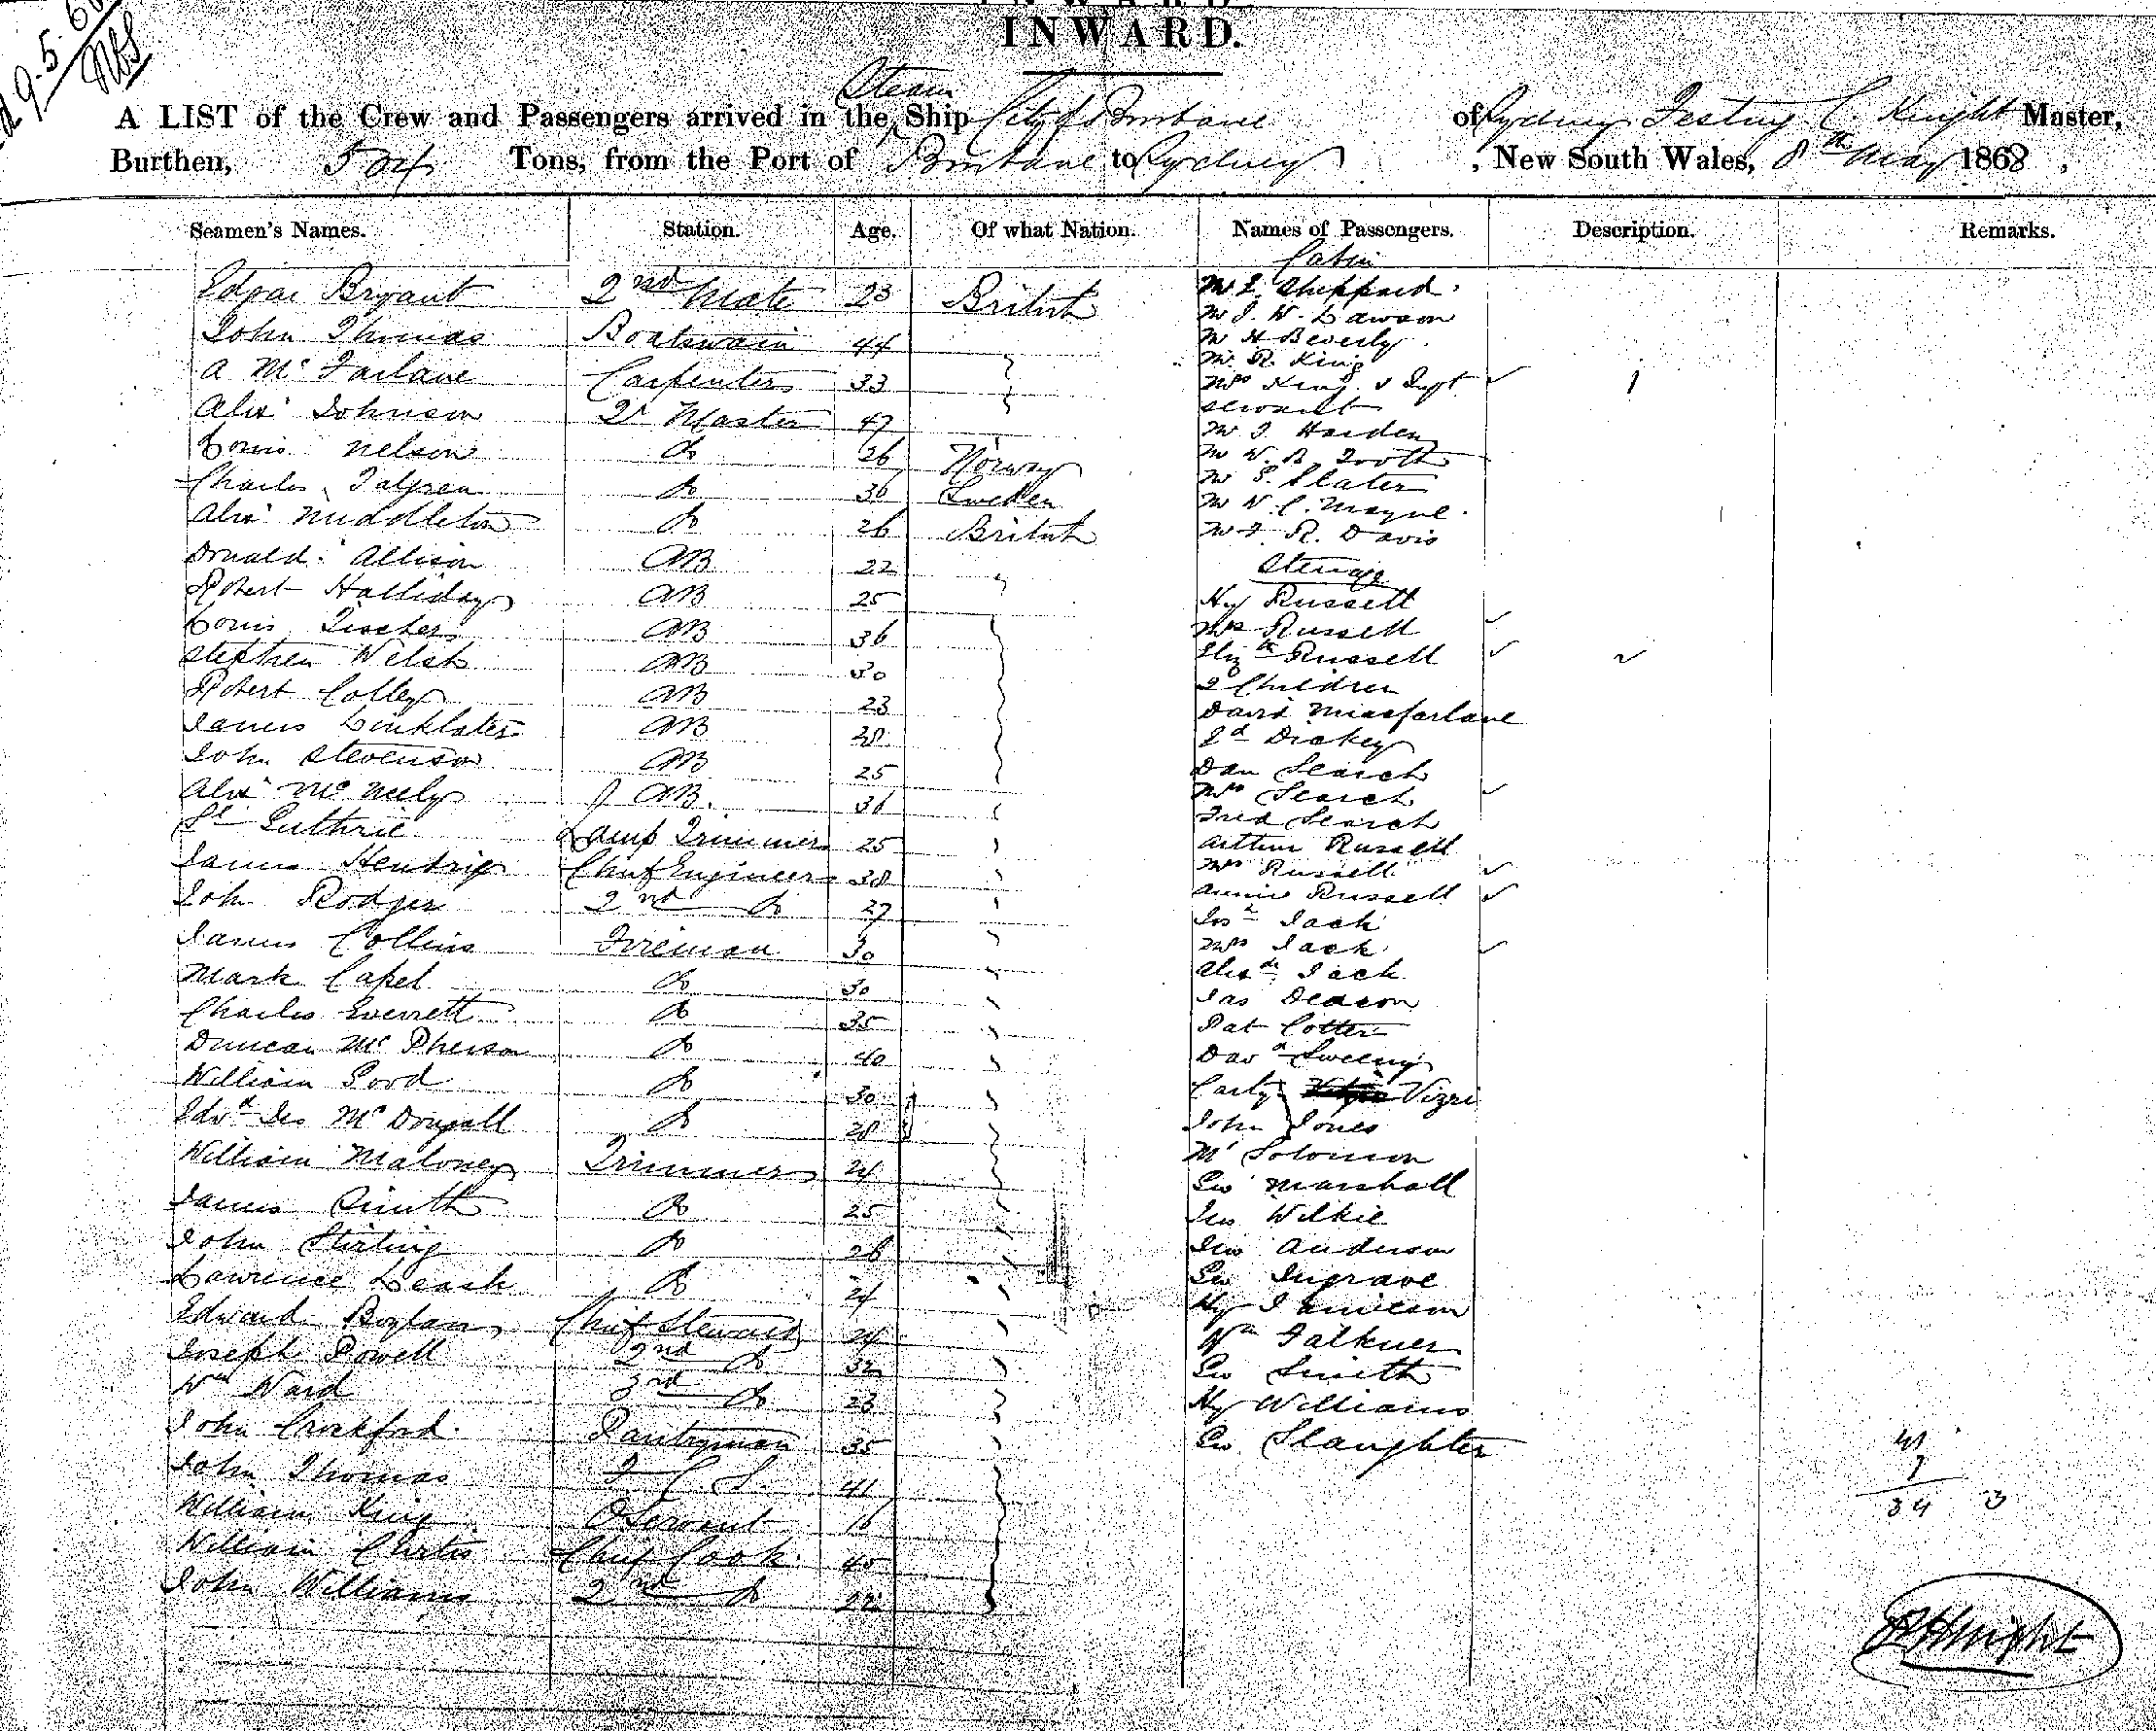 INWARD.
9-5-68
A LIST of the Crew and Passengers arrived in the Steam Ship City of Brisbane of Sydney Knight Master,
Burthen, 504 Tons, from the Port of Brisbane to Sydney, New South Wales, 8th May 1868,
Seamen's Names. Station. Age. Of what Nation. Names of Passengers. Description. Remarks.
Cabin
Edgar Bryant 2nd Mate 23 British
John Thomas Boatswain 44
A McFarlane Carpenter 33
Alexr Johnson Qr Master 47
Louis Nelson Do 26 Norway
Charles Do 36 Sweden
Alexr Middleton Do 26 British
Donald Allison AB 22 "
Robert Halliday AB 25
Louis Fischer AB 36
Stephen Welsh AB 30
Robert Colley AB 23
James Linklater AB 28
John Stevenson AB 25
Alexr McNeely AB 36
Guthrie Lamp Trimmer 25
James Hendrip Chief Engineer 38
John Rodger 2nd Do 27
James Collins Fireman 30
Mark Capel Do 30
Charles Everett Do 35
Duncan McPherson Do 40
William Good Do 30
Edwd McDougall Do 28
William Maloney Trimmer 24
James Smith Do 25
John Stirling Do 26
Lawrence Leash Do 24
Edward Boylan Chief Steward 24
Joseph Powell 2nd Do 32
Wm Ward 3rd Do 23
John Crockford Pantryman 35
John Thomas 41
William King Servant 16
William Curtis Chief Cook 40
John Williams 2nd Do 22
Mr Sheppard
Mr J. W. Lawson
Mr H Beverly
Mr R. King
Mrs King &
servant
Mr J. Harden
Mr W. B. Tooth
Mr S. Slater
Mr W. C. Mayne
Mr F. R. Davis
Steerage
Hy Russell
Mrs Russell
Elizth Russell
2 Children
David Macfarlane
Ed Dickey
Dan Search
Mrs Search
Fred Search
Arthur Russell
Mrs Russell
Annie Russell
Josh Jack
Mrs Jack
Alexdr Jack
Jas Deacon
Pat Cotter
Davd Sweeny
Carly Vizri
John Jones
Mr Solomon
Geo Marshall
Jas Wilkie
Anderson
Geo Ingrave
Hy Jamieson
Wm Falkner
Geo Smith
Hy Williams
Geo Slaughter
41
7
34 3
Knight